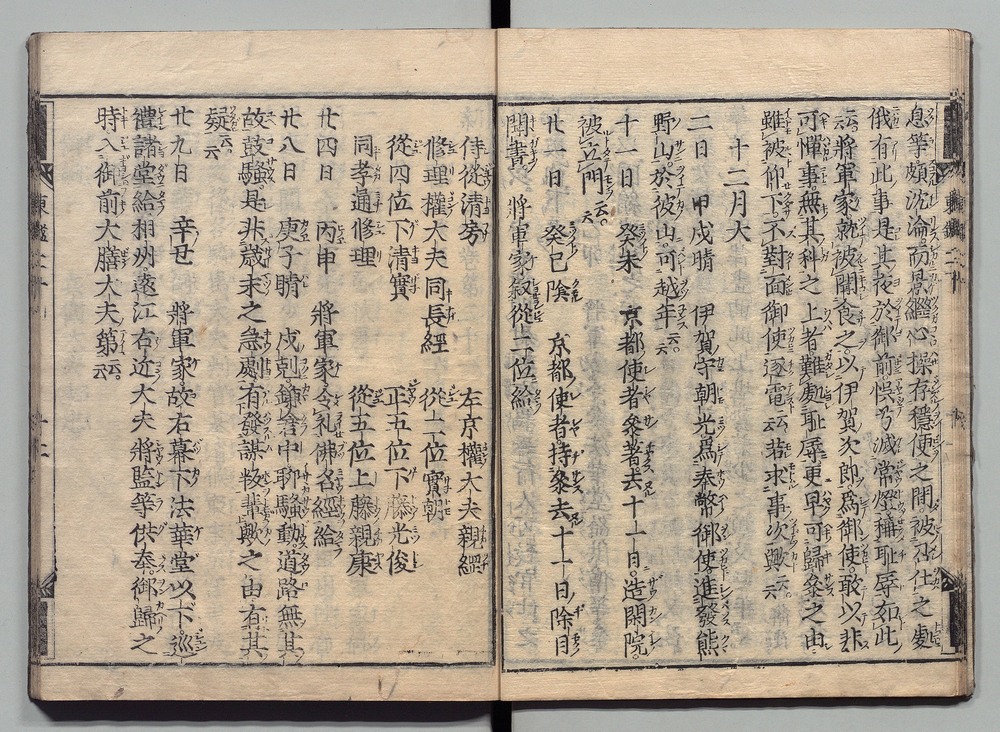 息等頗沈淪而景繼心操存穩便之間被召仕之處
俄有此事是其夜於御前誤乃滅常燈稱恥辱在此
云云將軍家就被聞食之以伊賀次郎為御使敢以非
可憚事無其科之上者難處恥辱更早可歸參之由
雖被仰下不對面御使逐電云云若求事次歟云云
十二月大
二日 甲戌晴 伊賀守朝光爲奉幣御使進發熊
野山於彼山可越年云云
十一日 癸未 京都使者參著去十一日造閑院
被立門云云
廿一日 癸巳陰 京都使者持參去十日除目
聞書 將軍家叙從二位給
侍從清房 左京權大夫親經
修理權大夫同長經 從二位實朝
從四位下清實 正五位下藤光俊
同孝通修理 從五位上藤親康
廿四日 丙申 將軍家令礼佛名經給
廿八日 庚子晴 戌剋鎌倉中聊騷動道路無其
故鼓騷是非歲末之急處有發謀叛輩歟之由有其
疑云云
廿九日 辛丑 將軍家故右幕下法華堂以下巡
禮諸堂給相州遠江右近大夫將監等供奉御歸之
時入御前大膳大夫第云云
東鑑二十